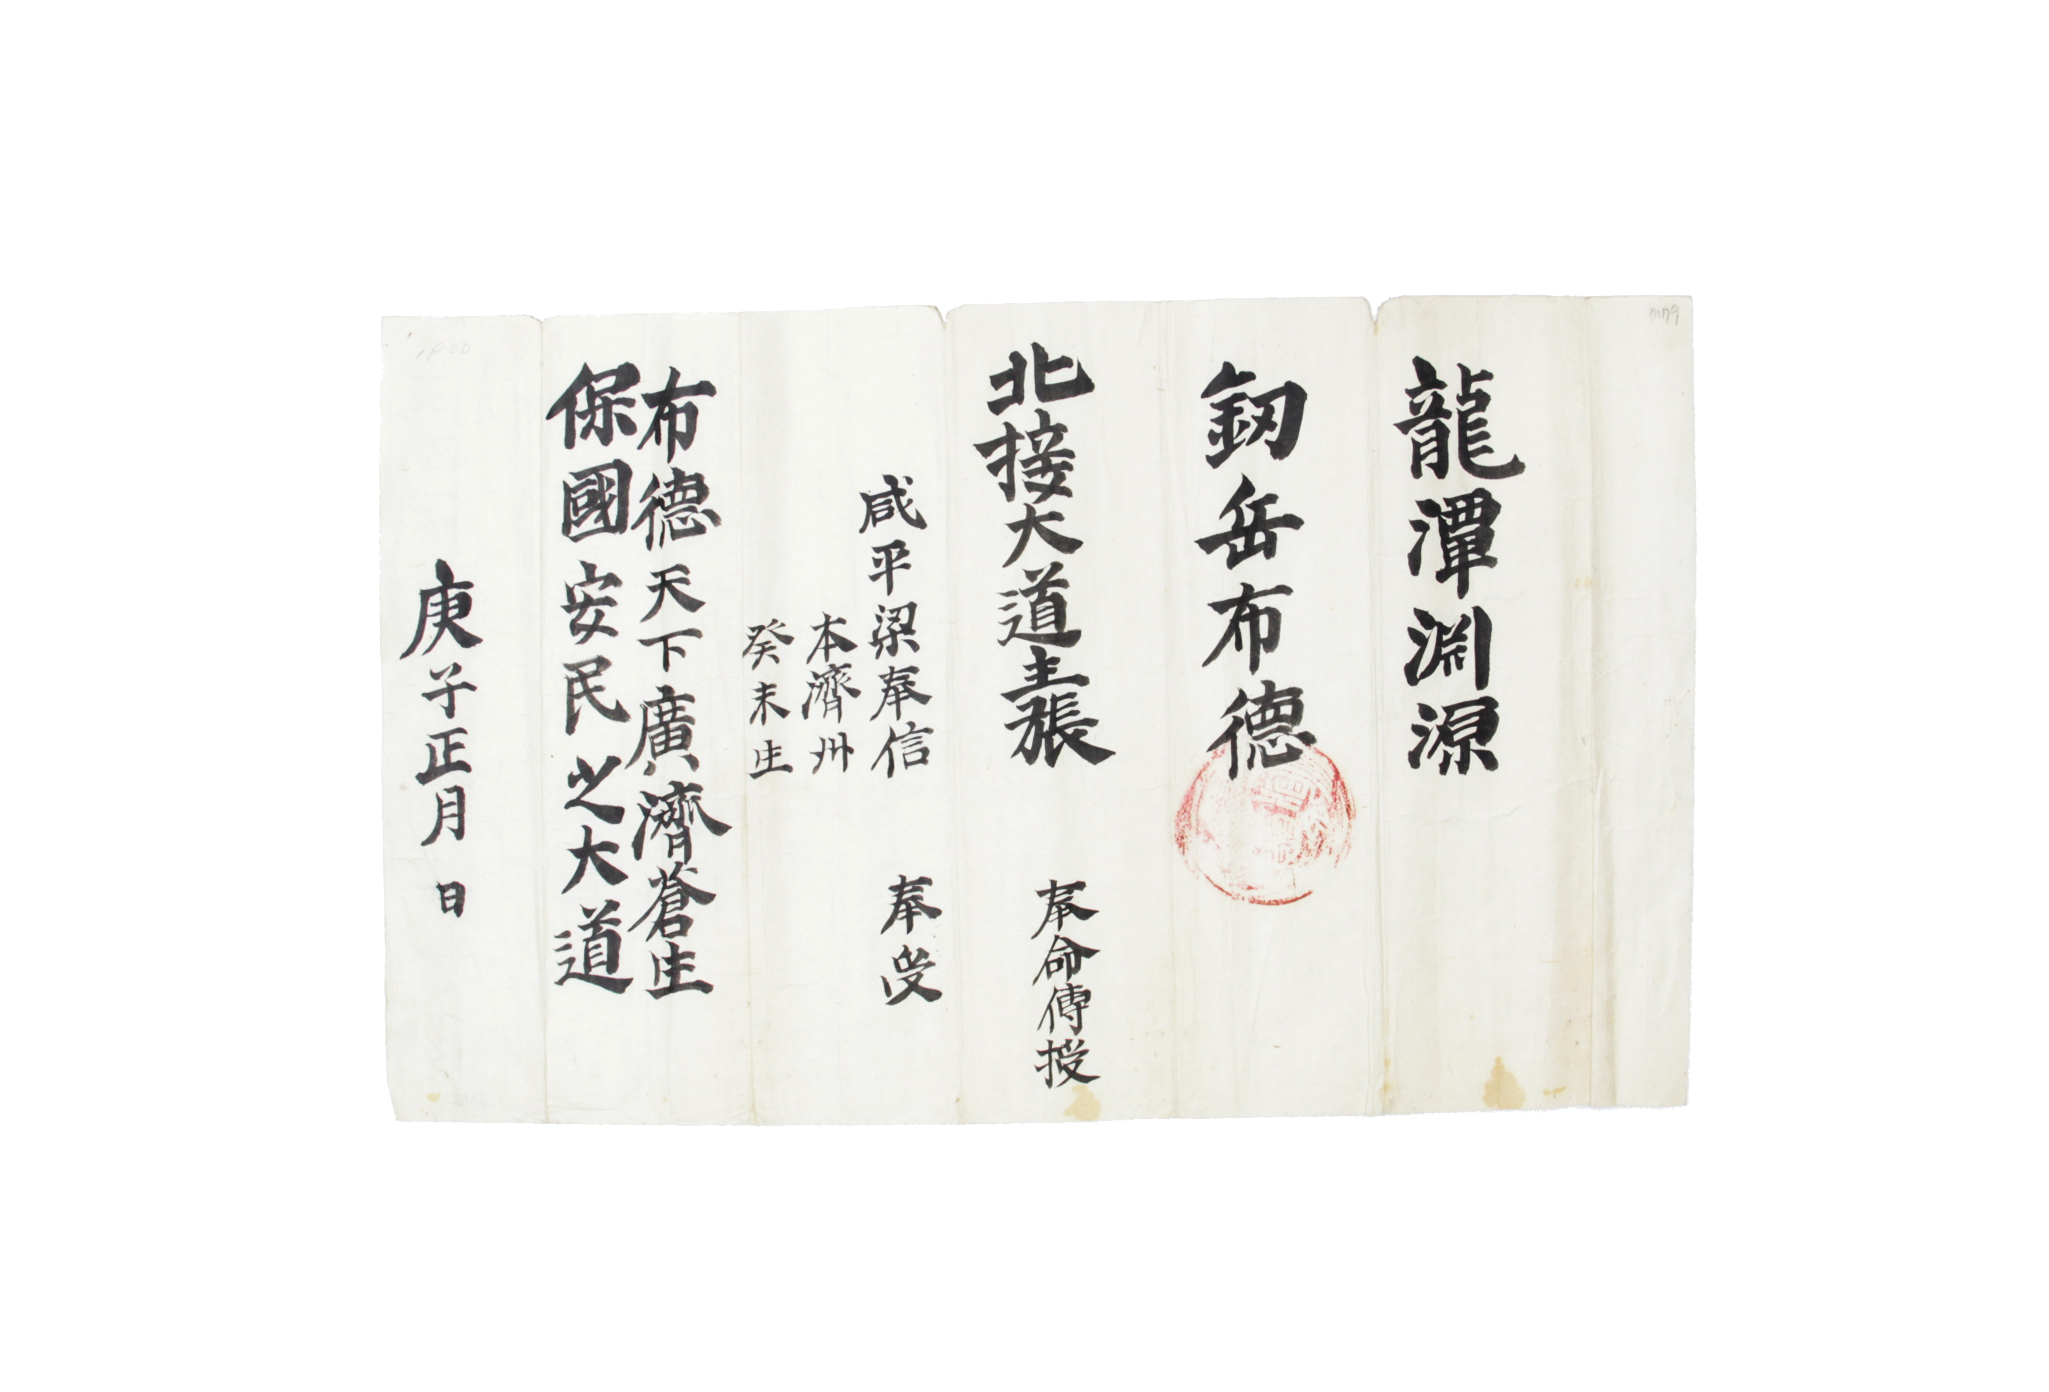 龍潭淵源
釼岳布德
北接大道主張
奉命傳授
咸平梁奉信
奉受
本濟州
癸未生
布德天下廣濟蒼生
保國安民之大道
庚子正月 日